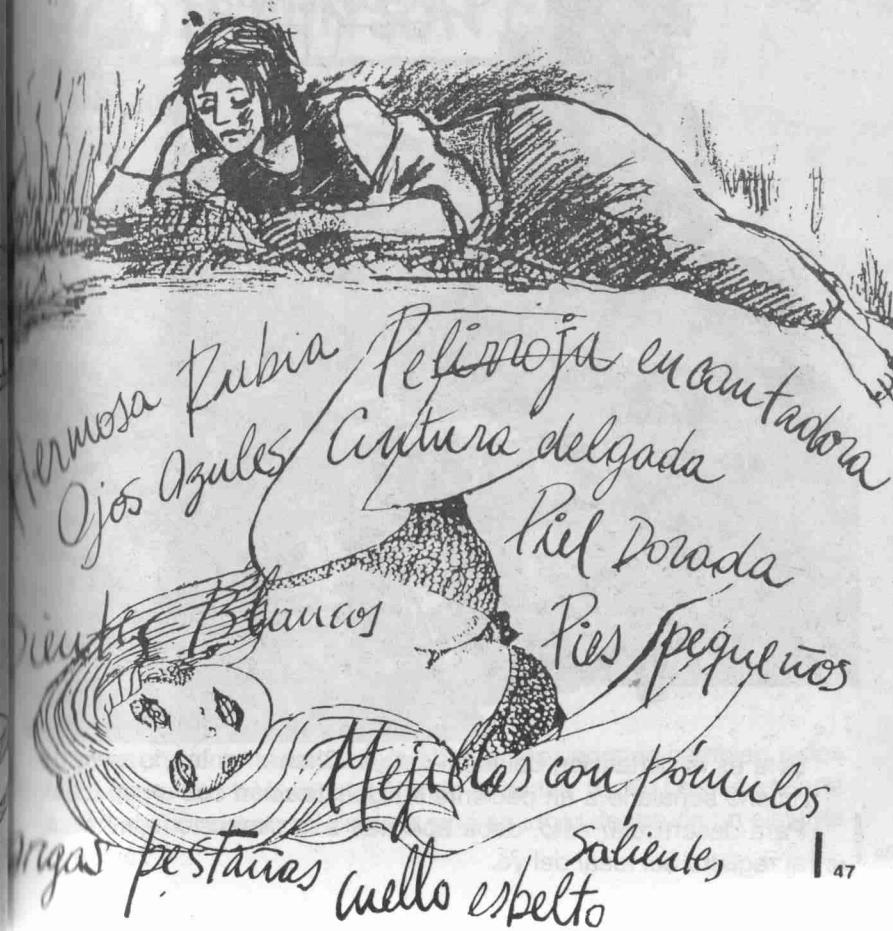 Hermosa Rubia
Pelirroja encantadora
Ojos Azules
Cintura delgada
Piel Dorada
Dientes Blancos
Pies pequeños
Mejillas con pómulos
Salientes
largas pestañas
cuello esbelto
47